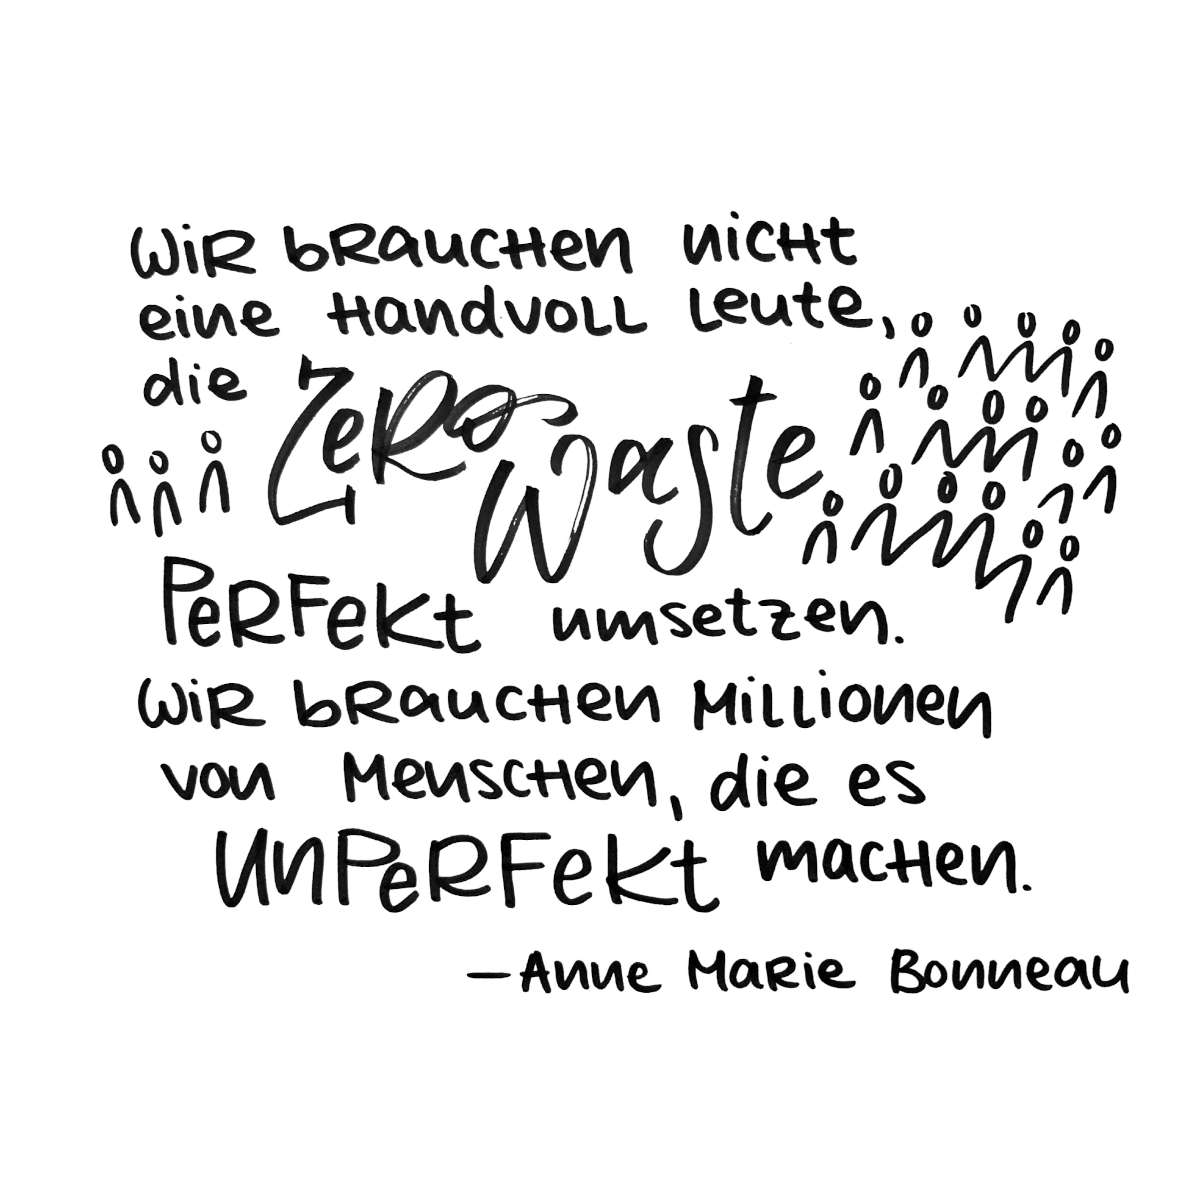 Wir brauchen nicht
eine Handvoll Leute,
die Zero Waste
perfekt umsetzen.
Wir brauchen Millionen
von Menschen, die es
unperfekt machen.
– Anne Marie Bonneau